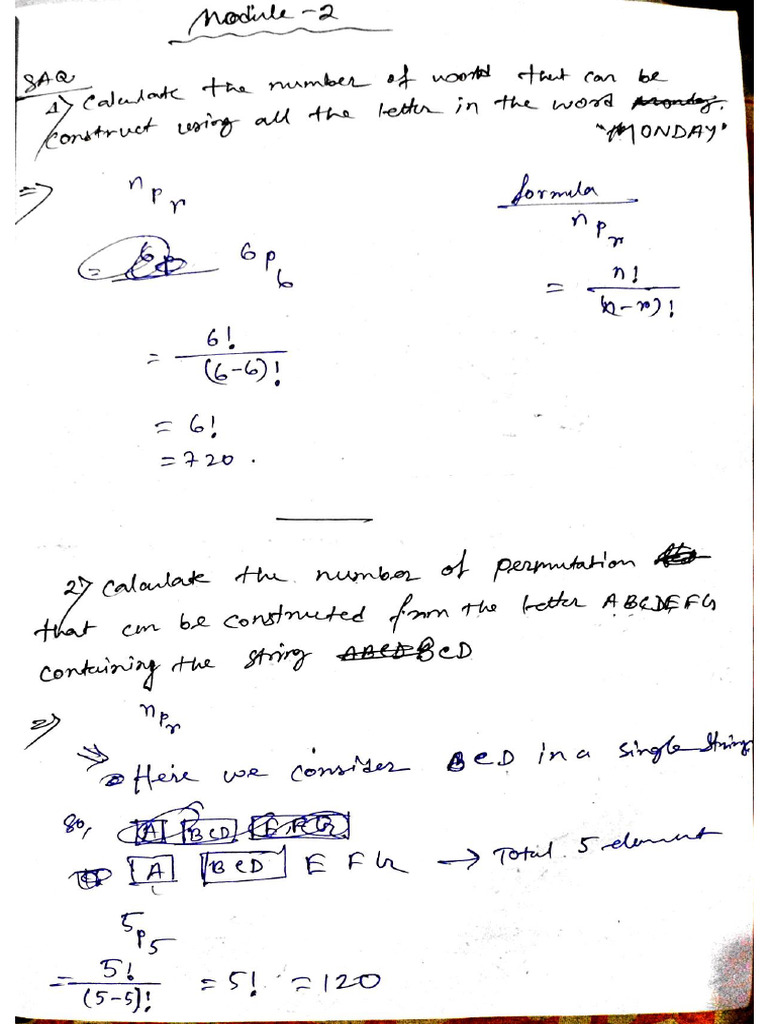 Module - 2
SAQ
1) Calculate the number of word that can be
construct using all the letter in the word
"MONDAY"
=> nPr
formula
nPr
= n! / (n-r)!
6P6
= 6! / (6-6)!
= 6!
= 720.
2) Calculate the number of permutation
that can be constructed from the letter ABCDEFG
containing the string BCD
=> nPr
=> Here we consider BCD in a single string
so,
A BCD E F G → Total 5 element
5P5
= 5! / (5-5)! = 5! = 120